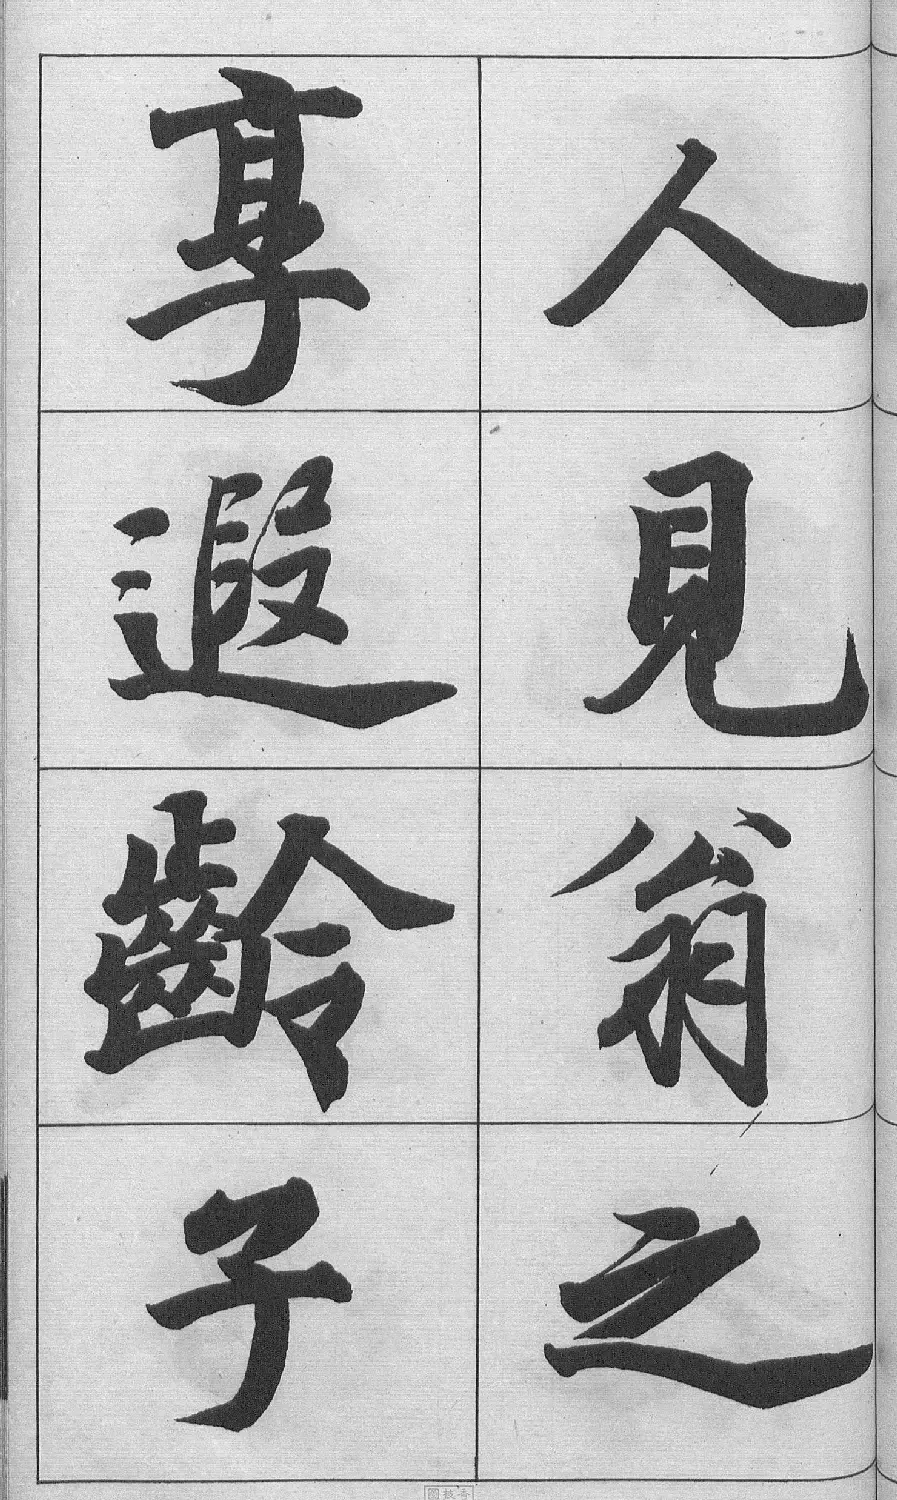 人見翁之
享遐齡子